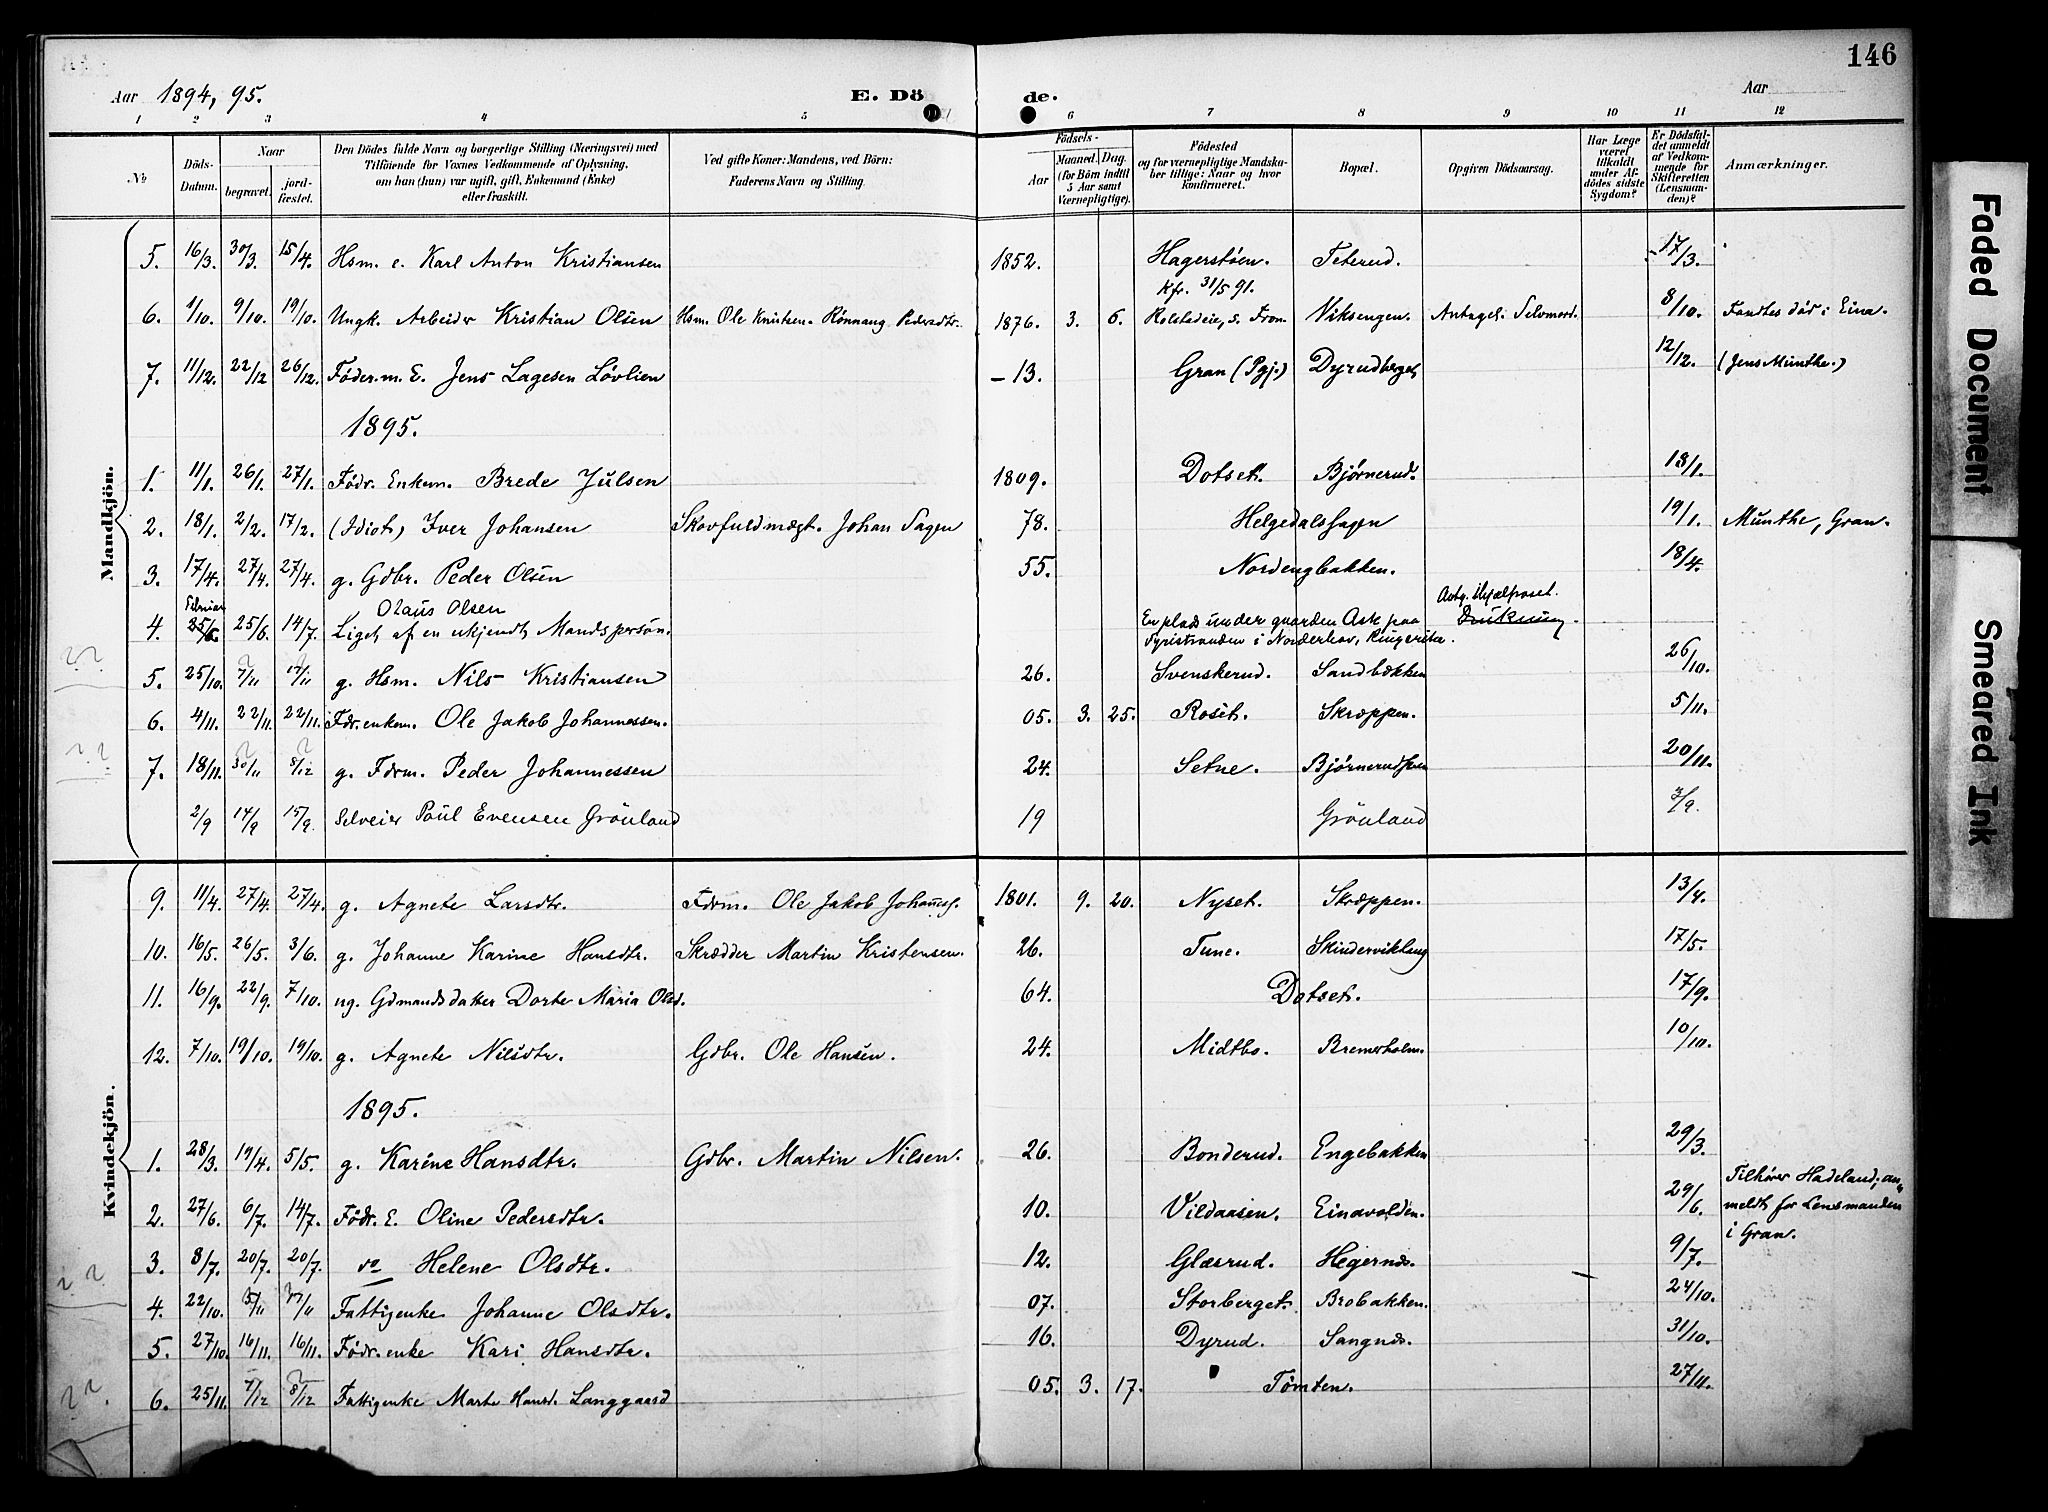 146
Aar 1894, 95.
E. Döde.
Aar
1 2 3 4 5 6 7 8 9 10 11 12
№
Döds-Datum.
Naar
begravet.
jordfæstet.
Den Dödes fulde Navn og borgerlige Stilling (Næringsvei) med
Tilföiende for Voxnes Vedkommende af Oplysning,
om han (hun) var ugift, gift, Enkemand (Enke)
eller fraskilt.
Ved gifte Koner: Mandens, ved Börn:
Faderens Navn og Stilling.
Födsels-
Aar
Maaned. Dag.
(for Börn indtil
5 Aar samt
Værnepligtige).
Födested
og for værnepligtige Mandskaber tillige: Naar og hvor
konfirmeret.
Bopæl.
Opgiven Dödsaarsag.
Har Læge
været
tilkaldt
under Afdödes sidste
Sygdom?
Er Dödsfaldet anmeldt
af Vedkommende for
Skifteretten
(Lensmanden)?
Anmærkninger.
Mandkjön.
5. 16/3. 30/3. 15/4. Hsm. e. Karl Anton Kristiansen 1852. Hagerstøen. Teterud. 17/3.
Kfr. 31/5 91.
6. 1/10. 9/10. 19/10. Ungk. Arbeider Kristian Olsen Hsm. Ole Knutsen. Rönnaug Pedersdtr. 1876. 3. 6. Kolstadeie, s. Fron. Viksengen. Antagel. Selvmord. 8/10. Fandtes død i Eina.
7. 11/12. 22/12 26/12. Föder.m. E. Jens Lagesen Lövlien -13. Gran (Pgj.) Dyrudberget 12/12. (Jens Munthe.)
1895.
1. 11/1. 26/1. 27/1. Födr. Enkem. Brede Julsen 1809. Dotset. Bjørnerud. 18/1.
2. 18/1. 2/2. 17/2. (Idiot) Iver Johansen Skovfuldmægt. Johan Sagen 78. Helgedalshagen 19/1. Munthe, Gran.
3. 17/4. 27/4. 27/4. g. Gdbr. Peder Olsen 55. Nordengbakken. 18/4.
Februar Olaus Olsen Antg. Ihjælfroset.
4. 25/6. 25/6. 14/7. Liget af en ukjendt Mandsperson. En plads under gaarden Ask paa
Tyristranden i Norderhov, Ringerike. Drukning.
5. 25/10. 7/11 17/11 g. Hsm. Nils Kristiansen 26. Svenskerud. Sandbækken 26/10.
6. 4/11. 22/11. 22/11. Fdr.enkem. Ole Jakob Johannessen. 05. 3. 25. Roset. Skræppen. 5/11.
7. 18/11. 30/11 8/12 g. Fdrm. Peder Johannessen 24. Setne. 20/11.
2/9 14/9 15/9. Selveier Poul Evensen Grönland 19 Grönland 3/9.
Kvindekjön.
9. 11/4. 27/4. 27/4. g. Agnete Larsdtr. Fdrm. Ole Jakob Johannesf. 1801. 9. 20. Nyset. Skræppen. 13/4.
10. 16/5. 26/5. 3/6. g. Johanne Karine Hansdtr. Skrædder Martin Kristensen. 26. Tune. 17/5.
11. 16/9. 22/9. 7/10. ug. Gdmandsdatter Dorte Maria Olsd. 64. Dotset. 17/9.
12. 7/10. 19/10. 19/10. g. Agnete Nilsdtr. Gdbr. Ole Hansen. 24. Midtbo. Bremerholm. 10/10.
1895.
1. 28/3. 19/4. 5/5. g. Karine Hansdtr. Gdbr. Martin Nilsen. 26. Bonderud. Engebakken 29/3.
2. 27/6. 6/7. 14/7. Födr. E. Oline Pedersdtr. 10. Vildaasen. Einavolden. 29/6. Tilhører Hadeland; anmeldt for Lensmanden
i Gran.
3. 8/7. 20/7. 20/7. Helene Olsdtr. 12. Glæsrud. Hegernæs. 9/7.
4. 22/10. Fattigenke Johanne Olsdtr. 07. Storberget. Brobakken. 24/10.
5. 27/10. 16/11. 16/11. Födr.enke Kari Hansdtr. 16. Dyrud. Sangnæs. 31/10.
6. 25/11. 7/12 8/12 Fattigenke Marte Hansd. Langgaard 05. 3. 17. Tömten. 27/11.
Faded Document
Smeared Ink